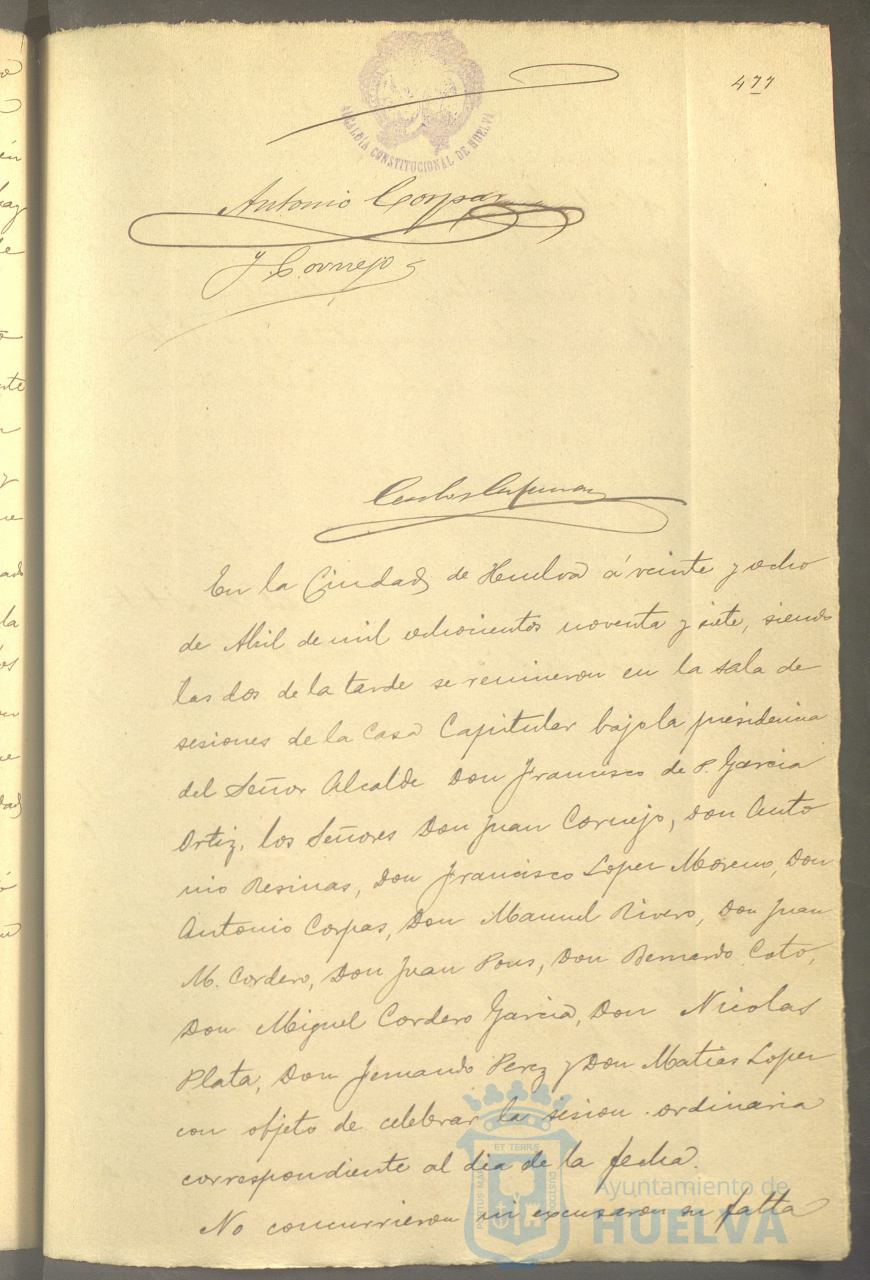 477
ALCALDÍA CONSTITUCIONAL DE HUELVA
Antonio Corpas
J. Cornejo
En la Ciudad de Huelva á veinte y ocho
de Abril de mil ochocientos noventa y siete, siendo
las dos de la tarde se reunieron en la sala de
sesiones de la Casa Capitular bajo la presidencia
del Señor Alcalde Don Francisco de P. Garcia
Ortiz, los Señores Don Juan Cornejo, Don Anto
nio Resinas, Don Francisco Lopez Moreno, Don
Antonio Corpas, Don Manuel Rivero, Don Juan
M. Cordero, Don Juan Pons, Don Bernardo Coto,
Don Miguel Cordero Garcia, Don Nicolas
Plata, Don Fernando Perez y Don Matias Lopez
con objeto de celebrar la sesion ordinaria
correspondiente al dia de la fecha.
No concurrieron ni excusaron su falta
PORTUS MARIS ET TERRÆ CUSTODIA
Ayuntamiento de
HUELVA